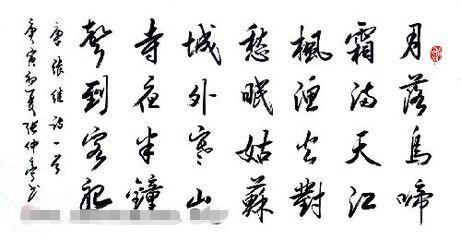 月落烏啼
霜满天江
楓漁火對
愁眠姑蘇
城外寒山
寺夜半鐘
聲到客船
唐張继诗一首
庚寅初夏张仲亭书